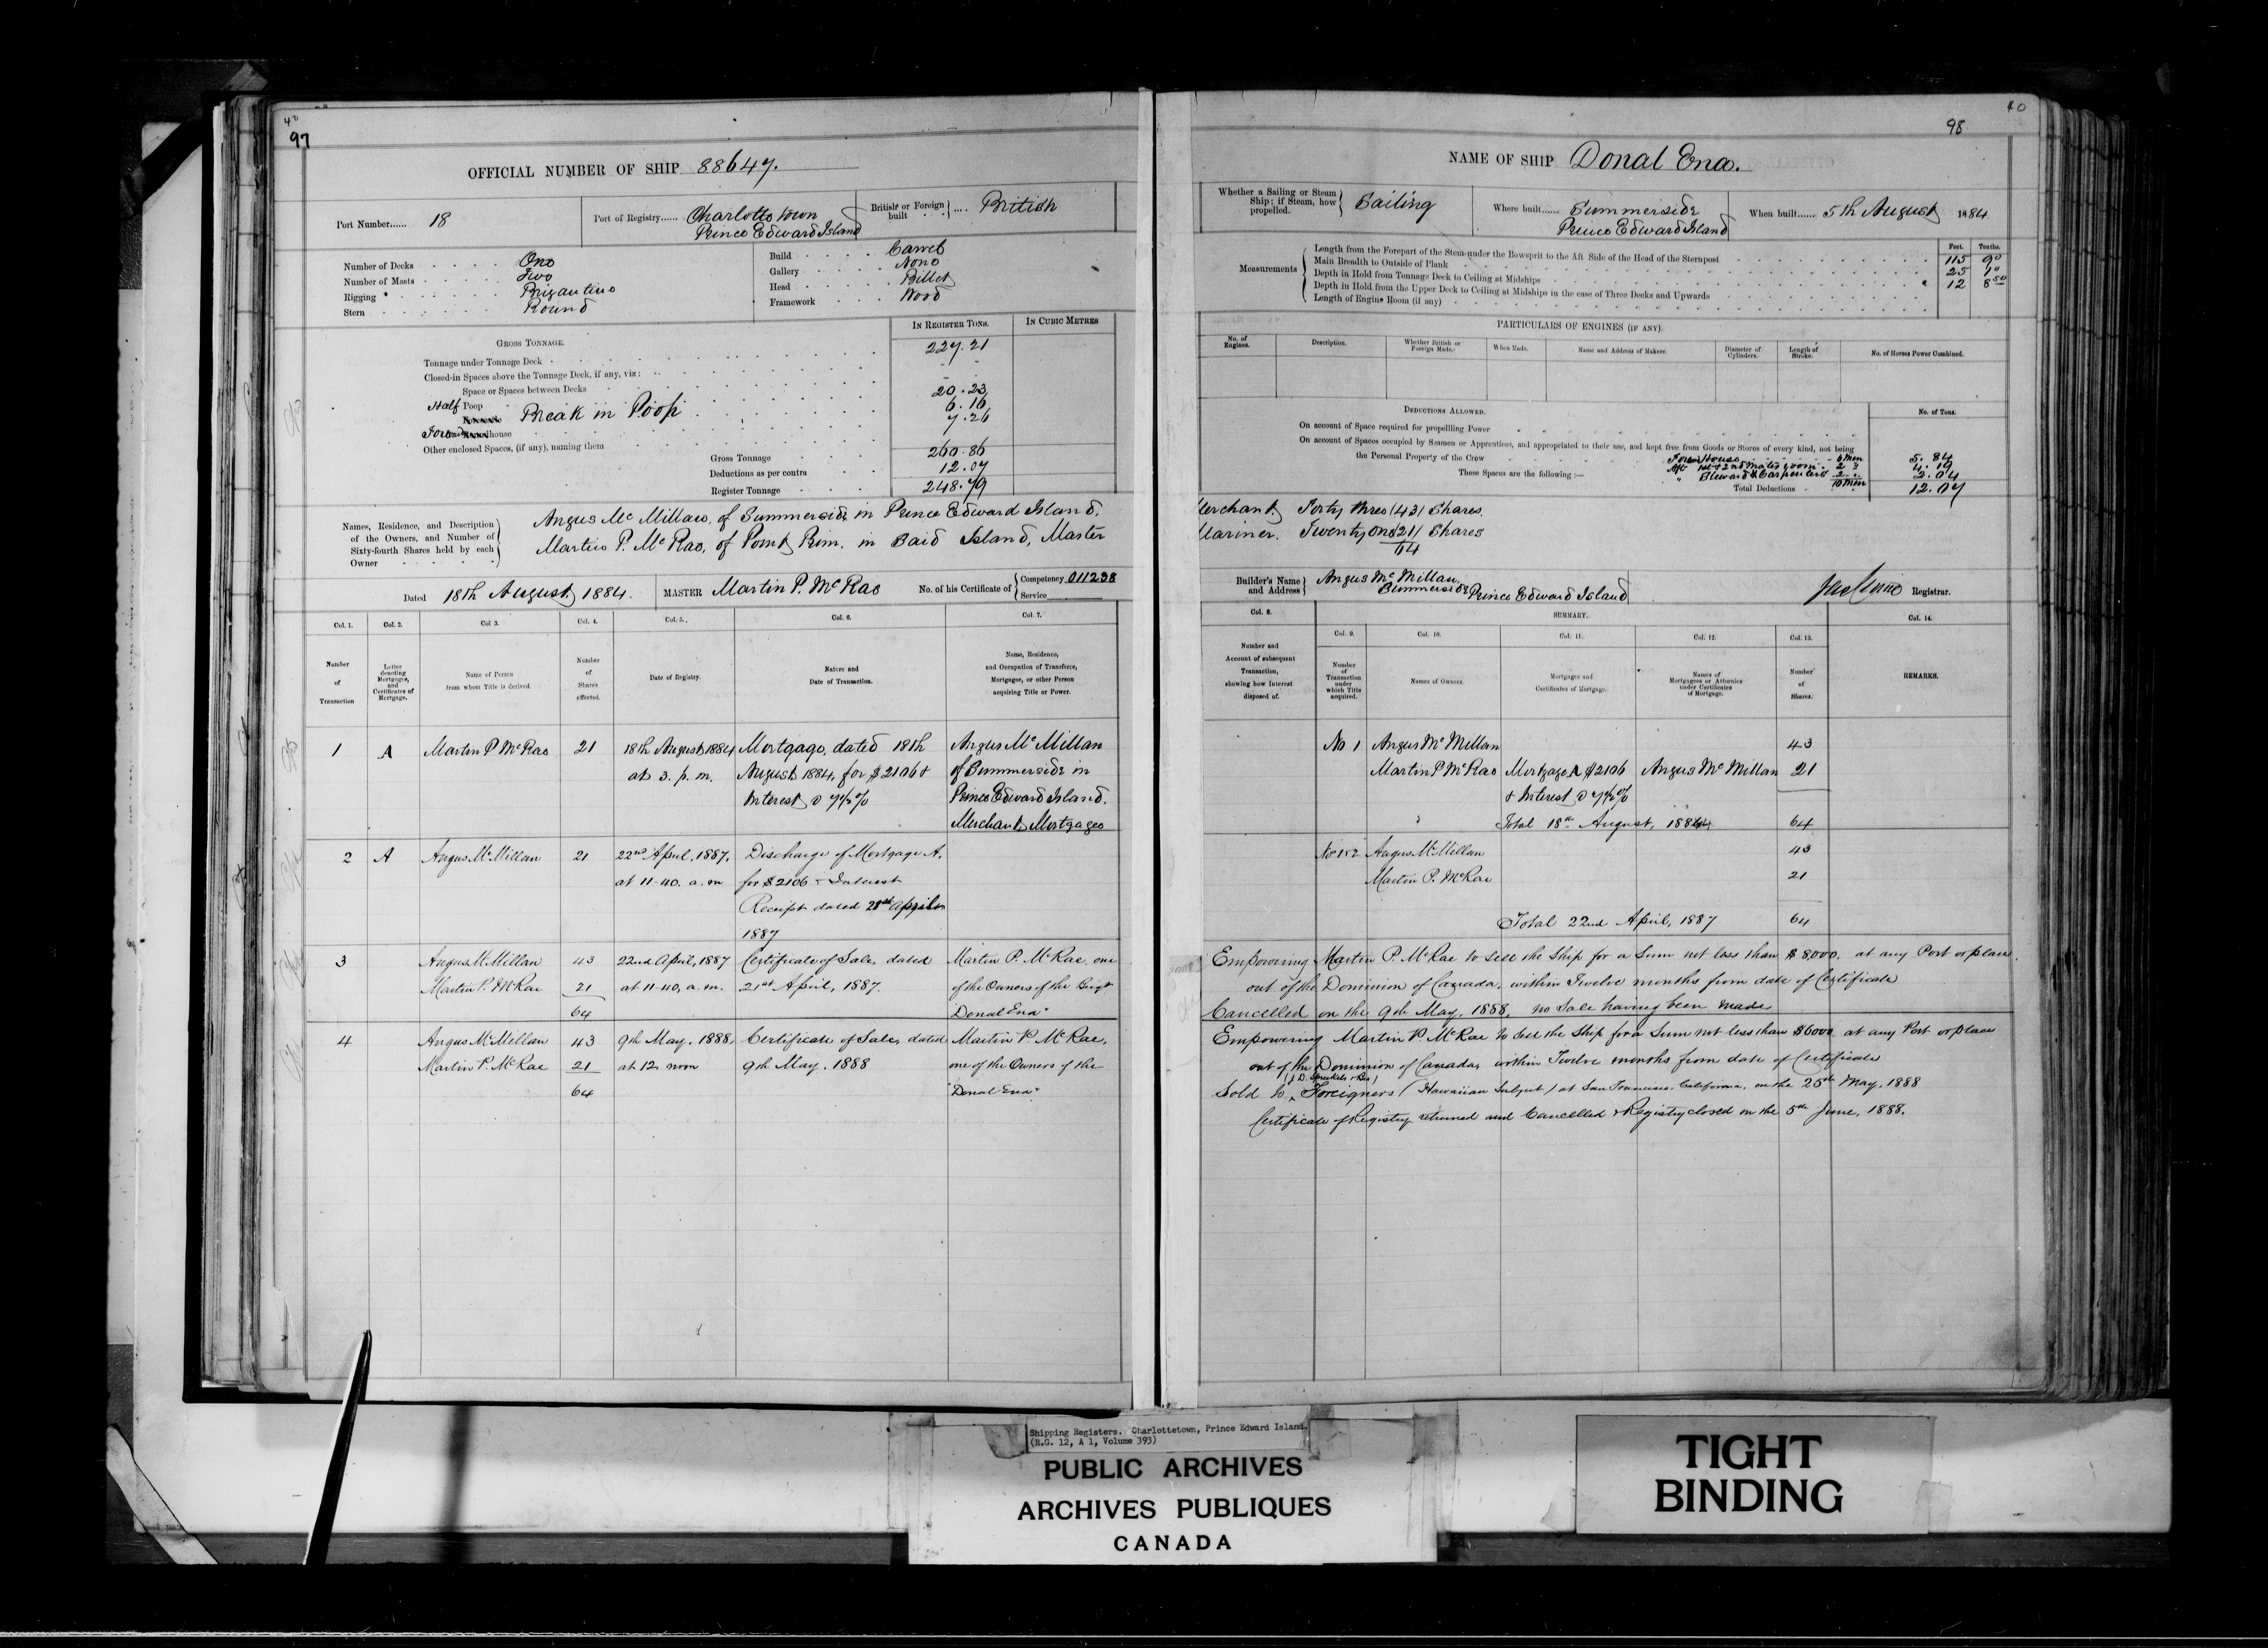 40
97
OFFICIAL NUMBER OF SHIP 88647.
Port Number...... 18
Port of Registry...... Charlottetown
Prince Edward Island
British or Foreign built .... British
Number of Decks One
Number of Masts Two
Rigging Brigantine
Stern Round
Build Carvel
Gallery None
Head Billet
Framework Wood
GROSS TONNAGE.
IN REGISTER TONS.
IN CUBIC METRES
Tonnage under Tonnage Deck 227.21
Closed-in Spaces above the Tonnage Deck, if any, viz:
Space or Spaces between Decks
Half Poop 20.23
Break in Poop 6.16
house 7.26
Other enclosed Spaces, (if any), naming them
Gross Tonnage 260.86
Deductions as per contra 12.07
Register Tonnage 248.79
Names, Residence, and Description of the Owners, and Number of Sixty-fourth Shares held by each Owner
Angus McMillan, of Summerside in Prince Edward Island,
Martin P. McRae, of Point Prim. in Said Island, Master
Dated 18th August 1884.
MASTER Martin P. McRae
No. of his Certificate of Competency 011238
Service
Col. 1. Col. 2. Col 3. Col. 4. Col. 5. Col. 6. Col. 7.
Number of Transaction
Letter denoting Mortgages, and Certificates of Mortgage.
Name of Person from whom Title is derived.
Number of Shares affected.
Date of Registry.
Nature and Date of Transaction.
Name, Residence, and Occupation of Transferee, Mortgagee, or other Person acquiring Title or Power.
1 A Martin P McRae 21 18th August 1884 Mortgage, dated 18th Angus McMillan
at 3. p. m. August 1884, for $2106 & of Summerside in
Interest @ 7½% Prince Edward Island.
Merchant Mortgagee
2 A Angus McMillan 21 22nd April, 1887, Discharge of Mortgage A.
at 11-40. a.m for $2106 & Interest
Receipt dated 21st April
1887
3 Angus McMillan 43 22nd April, 1887 Certificate of Sale, dated Martin P. McRae, one
Martin P. McRae 21 at 11-40, a.m. 21st April, 1887. of the Owners of the Brigt
64 "Donal Ena"
4 Angus McMillan 43 9th May, 1888, Certificate of Sale, dated Martin P. McRae,
Martin P. McRae 21 at 12, noon 9th May, 1888 one of the Owners of the
64 "Donal Ena"
40
98
NAME OF SHIP Donal Ena.
Whether a Sailing or Steam Ship; if Steam, how propelled. Sailing
Where built...... Summerside
Prince Edward Island
When built...... 5th August 1884
Measurements
Feet. Tenths.
Length from the Forepart of the Stem under the Bowsprit to the Aft Side of the Head of the Sternpost 115 90
Main Breadth to Outside of Plank 25 10
Depth in Hold from Tonnage Deck to Ceiling at Midships 12 850
Depth in Hold from the Upper Deck to Ceiling at Midships in the case of Three Decks and Upwards
Length of Engine Room (if any)
PARTICULARS OF ENGINES (IF ANY).
No. of Engines.
Description.
Whether British or Foreign Made.
When Made.
Name and Address of Makers.
Diameter of Cylinders.
Length of Stroke.
No. of Horses Power Combined.
DEDUCTIONS ALLOWED.
No. of Tons.
On account of Space required for propelling Power
On account of Spaces occupied by Seamen or Apprentices, and appropriated to their use, and kept free from Goods or Stores of every kind, not being the Personal Property of the Crew
These Spaces are the following :—
Fore House 6 men 5.84
Aft 1st & 2nd mates room 2 " 4.19
" Steward & Carpenters 2 " 2.04
10 men
Total Deductions 12.07
Merchant. Forty three (43) Shares.
Mariner. Twenty one (21) Shares
64
Builder's Name and Address
Angus McMillan.
Summerside Prince Edward Island
Registrar.
Col. 8. SUMMARY. Col. 14.
Col. 9. Col. 10. Col. 11. Col. 12. Col. 13.
Number and Account of subsequent Transaction, showing how Interest disposed of.
Number of Transaction under which Title acquired.
Names of Owners.
Mortgages and Certificates of Mortgage.
Names of Mortgagees or Attornies under Certificates of Mortgage.
Number of Shares.
REMARKS.
No 1 Angus McMillan 43
Martin P McRae Mortgage A $2106 Angus McMillan 21
& Interest @ 7½%
Total 18th August, 1884 64
No 1&2 Angus McMillan 43
Martin P. McRae 21
Total 22nd April, 1887 64
Empowering Martin P. McRae to sell the Ship for a Sum not less than $8000. at any Port or place
out of the Dominion of Canada, within Twelve months from date of Certificate
Cancelled on the 9th May, 1888, no Sale having been made
Empowering Martin P. McRae to sell the Ship for a Sum not less than $6000 at any Port or place
out of the Dominion of Canada, within Twelve months from date of Certificate
(J D. Spreckels & Bros)
Sold to Foreigners (Hawaiian Subject) at San Francisco, California, on the 25th May, 1888
Certificate of Registry returned and Cancelled & Registry closed on the 5th June, 1888.
Shipping Registers. Charlottetown, Prince Edward Island.
(R.G. 12, A 1, Volume 393)
PUBLIC ARCHIVES
ARCHIVES PUBLIQUES
CANADA
TIGHT
BINDING